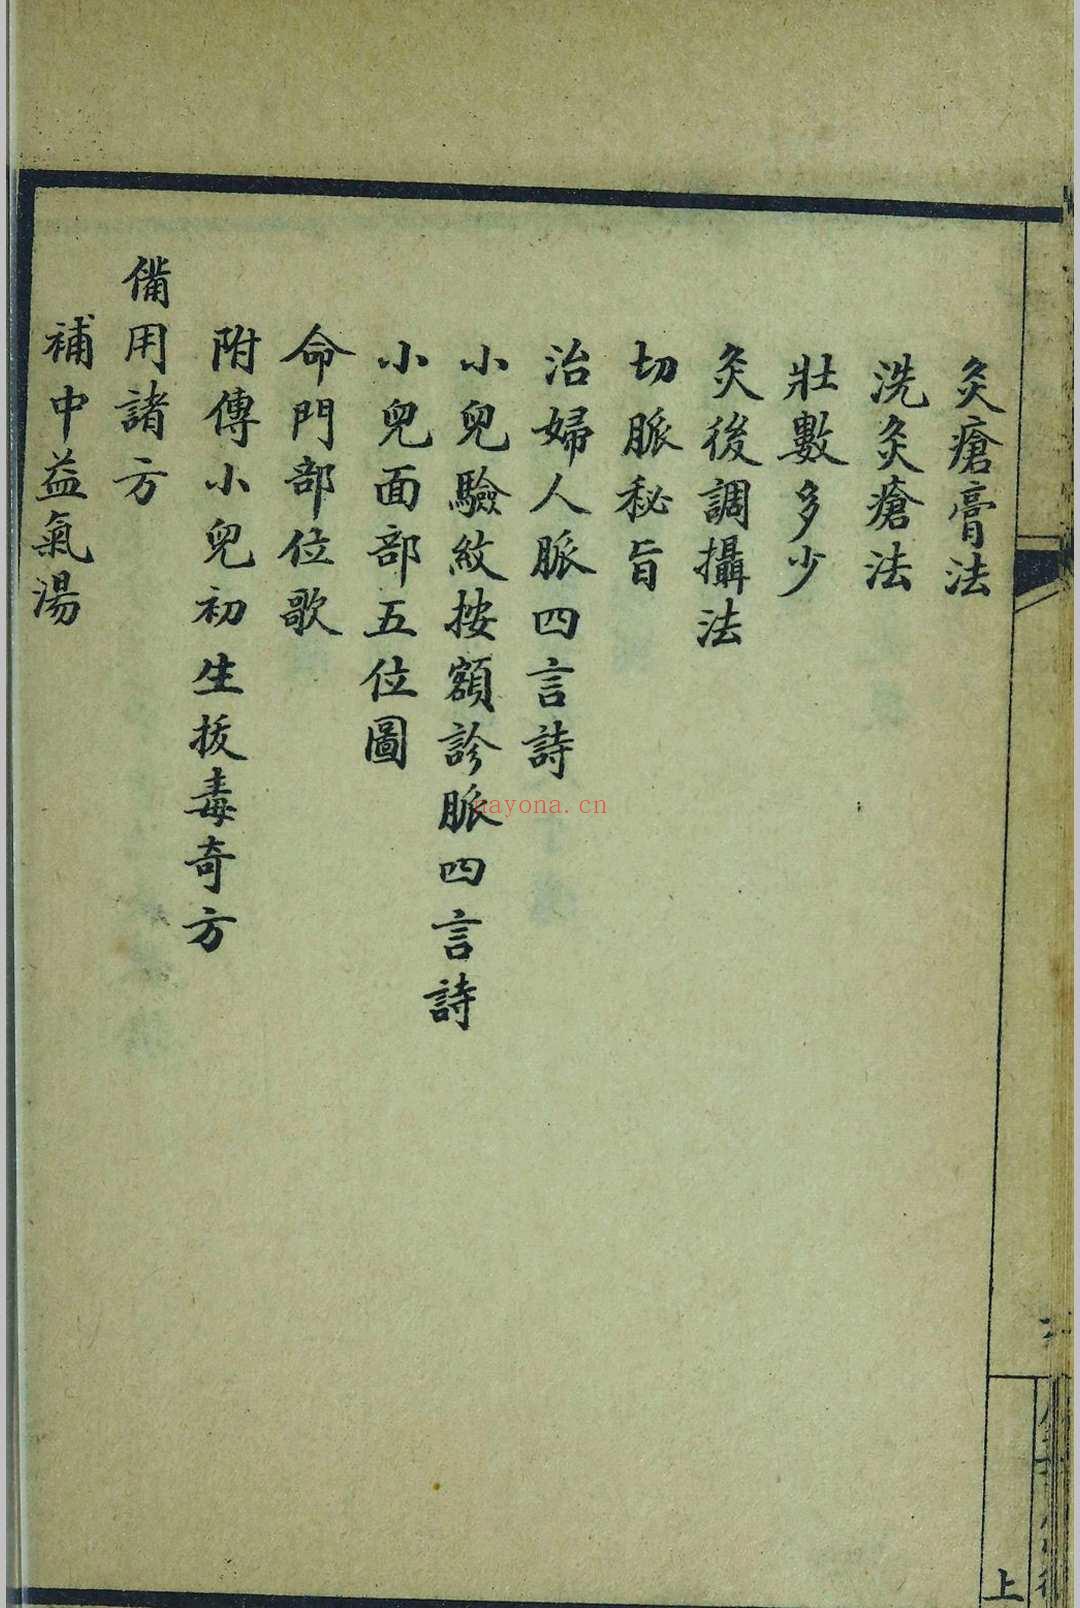 灸瘡膏法
洗灸瘡法
壯數多少
灸後調攝法
切脈秘旨
治婦人脈四言詩
小兒驗紋按額診脈四言詩
小兒面部五位圖
命門部位歌
附傳小兒初生拔毒奇方
備用諸方
補中益氣湯
上
nayona.cn